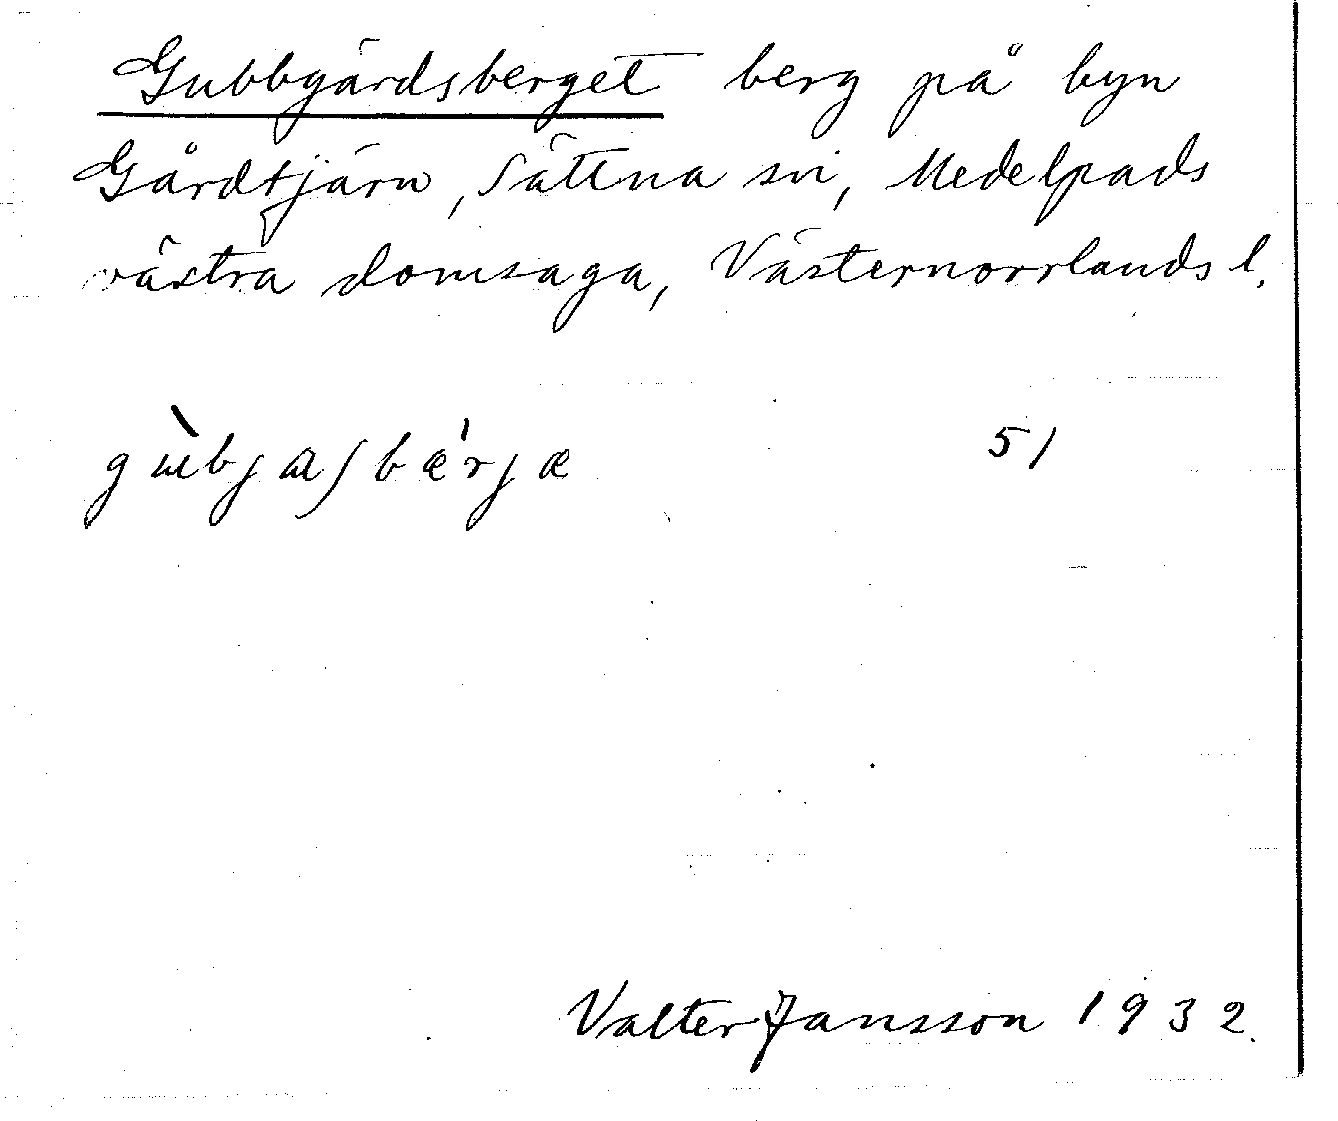 Gubbgärdsberget berg på byn
Gårdtjärn, Sättna sn, Medelpads
västra domsaga, Västernorrlands l.
51
Valter Jansson 1932.